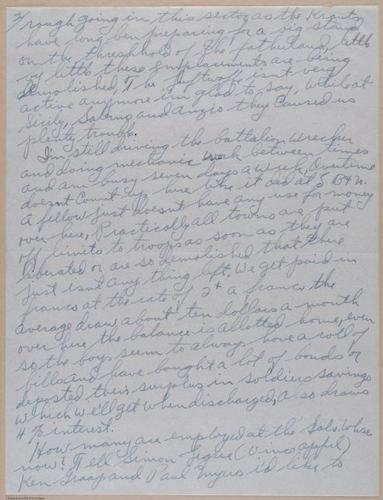 Rough going in, this sector as the Krauts
have long ben preparing for a big stand
on the threshhold of the fatherland, little
by little these emplacements are being
demolished, The luftwaffe isnt very
active anymore im glad to say, while at
Sicily, Salerno and Anzio they caused us
plenty trouble.
I'm still driving the battalion wrecker
and doing mechanic work between times
and am busy seven days a week, Overtime
doesnt count up here like it did at S B & N.
A fellow just doesnt have any use for money
over here, Practically all towns are put
off limits to troops as soon as they are
liberated or are so demolished that there
just isnt any thing left. We get paid in
francs at the rate of 2¢ a franc, the
average draw about ten dollars a month
over here the balance is allotted home, even
so the boys seem to always have a roll of
bills, and have bought a lot of bonds or
deposted their surplus in soldiers savings
which we'll get when discharged, also draws
4 % interest.
How many are employed at the Sals. Whse
now? Tell Simon
Ken Graap and Paul Myers i'd like to